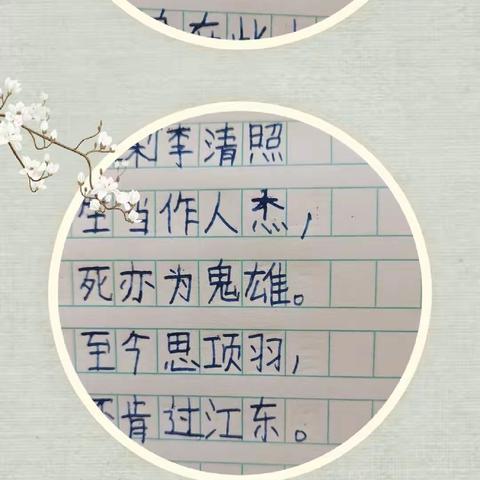 李清照
生当作人杰，
死亦为鬼雄。
至今思项羽，
不肯过江东。